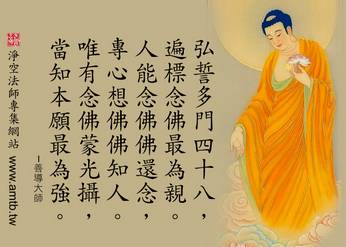 弘誓多門四十八，
遍標念佛最為親。
人能念佛佛還念，
專心想佛佛知人。
唯有念佛蒙光攝，
當知本願最為強。
－善導大師
淨空法師專集網站
www.amtb.tw